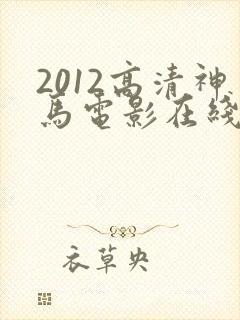 2012高清神
馬電影在綫
衣草央